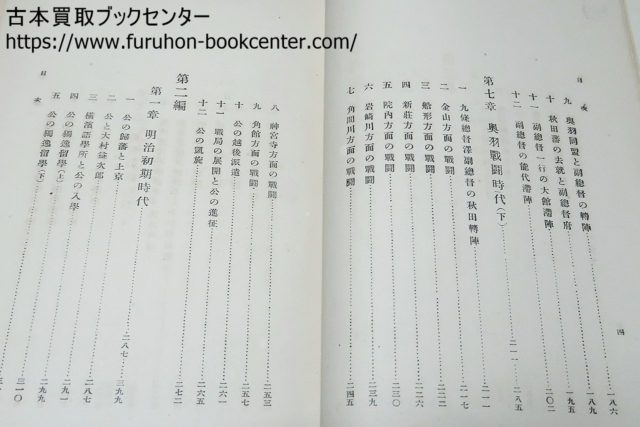 古本買取ブックセンター
https://www.furuhon-bookcenter.com/
目次
四
九 奥羽同盟と副總督の轉陣……一八六
十 秋田藩の去就と副總督府……一九五
十一 副總督一行の大館滯陣……二〇二
十二 副總督の能代滯陣……二八五
第七章 奥羽戰鬪時代(下)……二一一
一 九條總督澤副總督の秋田轉陣……二一一
二 金山方面の戰鬪……二一七
三 船形方面の戰鬪……二二二
四 新莊方面の戰鬪……二二六
五 院內方面の戰鬪……二三〇
六 岩崎川方面の戰鬪……二三九
七 角間川方面の戰鬪……二四五
八 神宮寺方面の戰鬪……二五三
九 角館方面の戰鬪……二五七
十 公の越後派遣……二六一
十一 戰局の展開と公の進征……二六五
十二 公の凱旋……二七二
第二編
第一章 明治初期時代……二八七 三九九
一 公の歸藩と上京……二八七
二 公と大村益次郎
三 橫濱語學所と公の入學……二九一
四 公の獨逸留學(上)……二九九
五 公の獨逸留學(下)……三一〇
目次